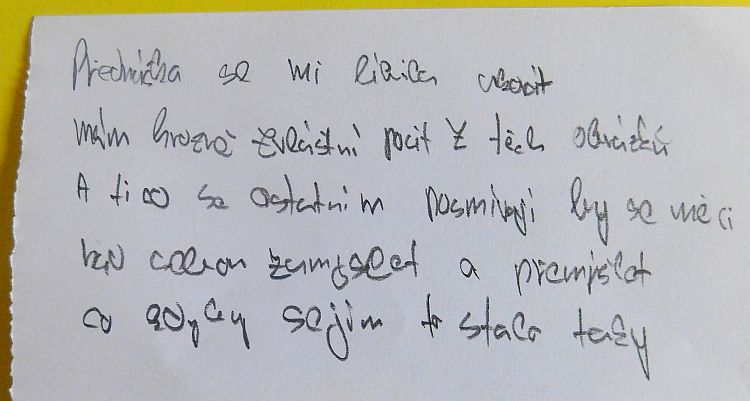 Přednáška se mi líbila
mám hrozně zvláštní pocit z těch obrázků
A ti co se ostatním posmívají by se měli
nad celkou zamyslet a přemýšlet
co kdyby sejim to stalo taky